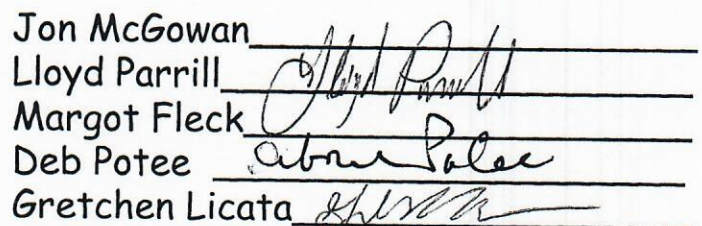 Jon McGowan
Lloyd Parrill Lloyd Parrill
Margot Fleck
Deb Potee Potee
Gretchen Licata